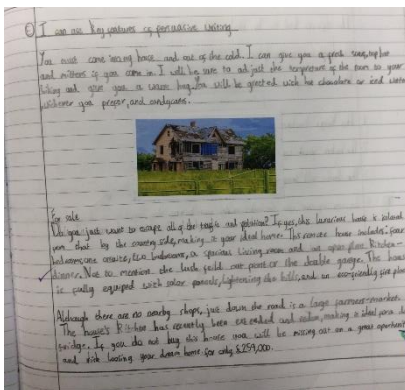 I can use key features of persuasive writing
You must come in my house and out of the cold. I can give you a great
and mittens if you come in. I will be sure to adjust the temperature of the room to your
liking and give you a warm hug. You will be greeted with hot chocolate or iced water
whichever you prefer, and
For sale
Do you just want to escape all of the traffic and pollution? If yes, this luxurious house is isolated
from that by the country side, making it your ideal home. This remote home includes: four
bedrooms, two bathrooms, a spacious living room and an open plan Kitchen-
dinner. Not to mention the lush field our front or the double garage. The house
is fully equipped with solar panels, lightening and an eco-friendly fire place
Although there are no nearby shops, just down the road is a large farmers market.
The house's Kitchen has recently been extended and making it ideal for a
fridge. If you do not buy this house you will be missing out on a great opportunity
and risk loosing your dream home for only £259,000.